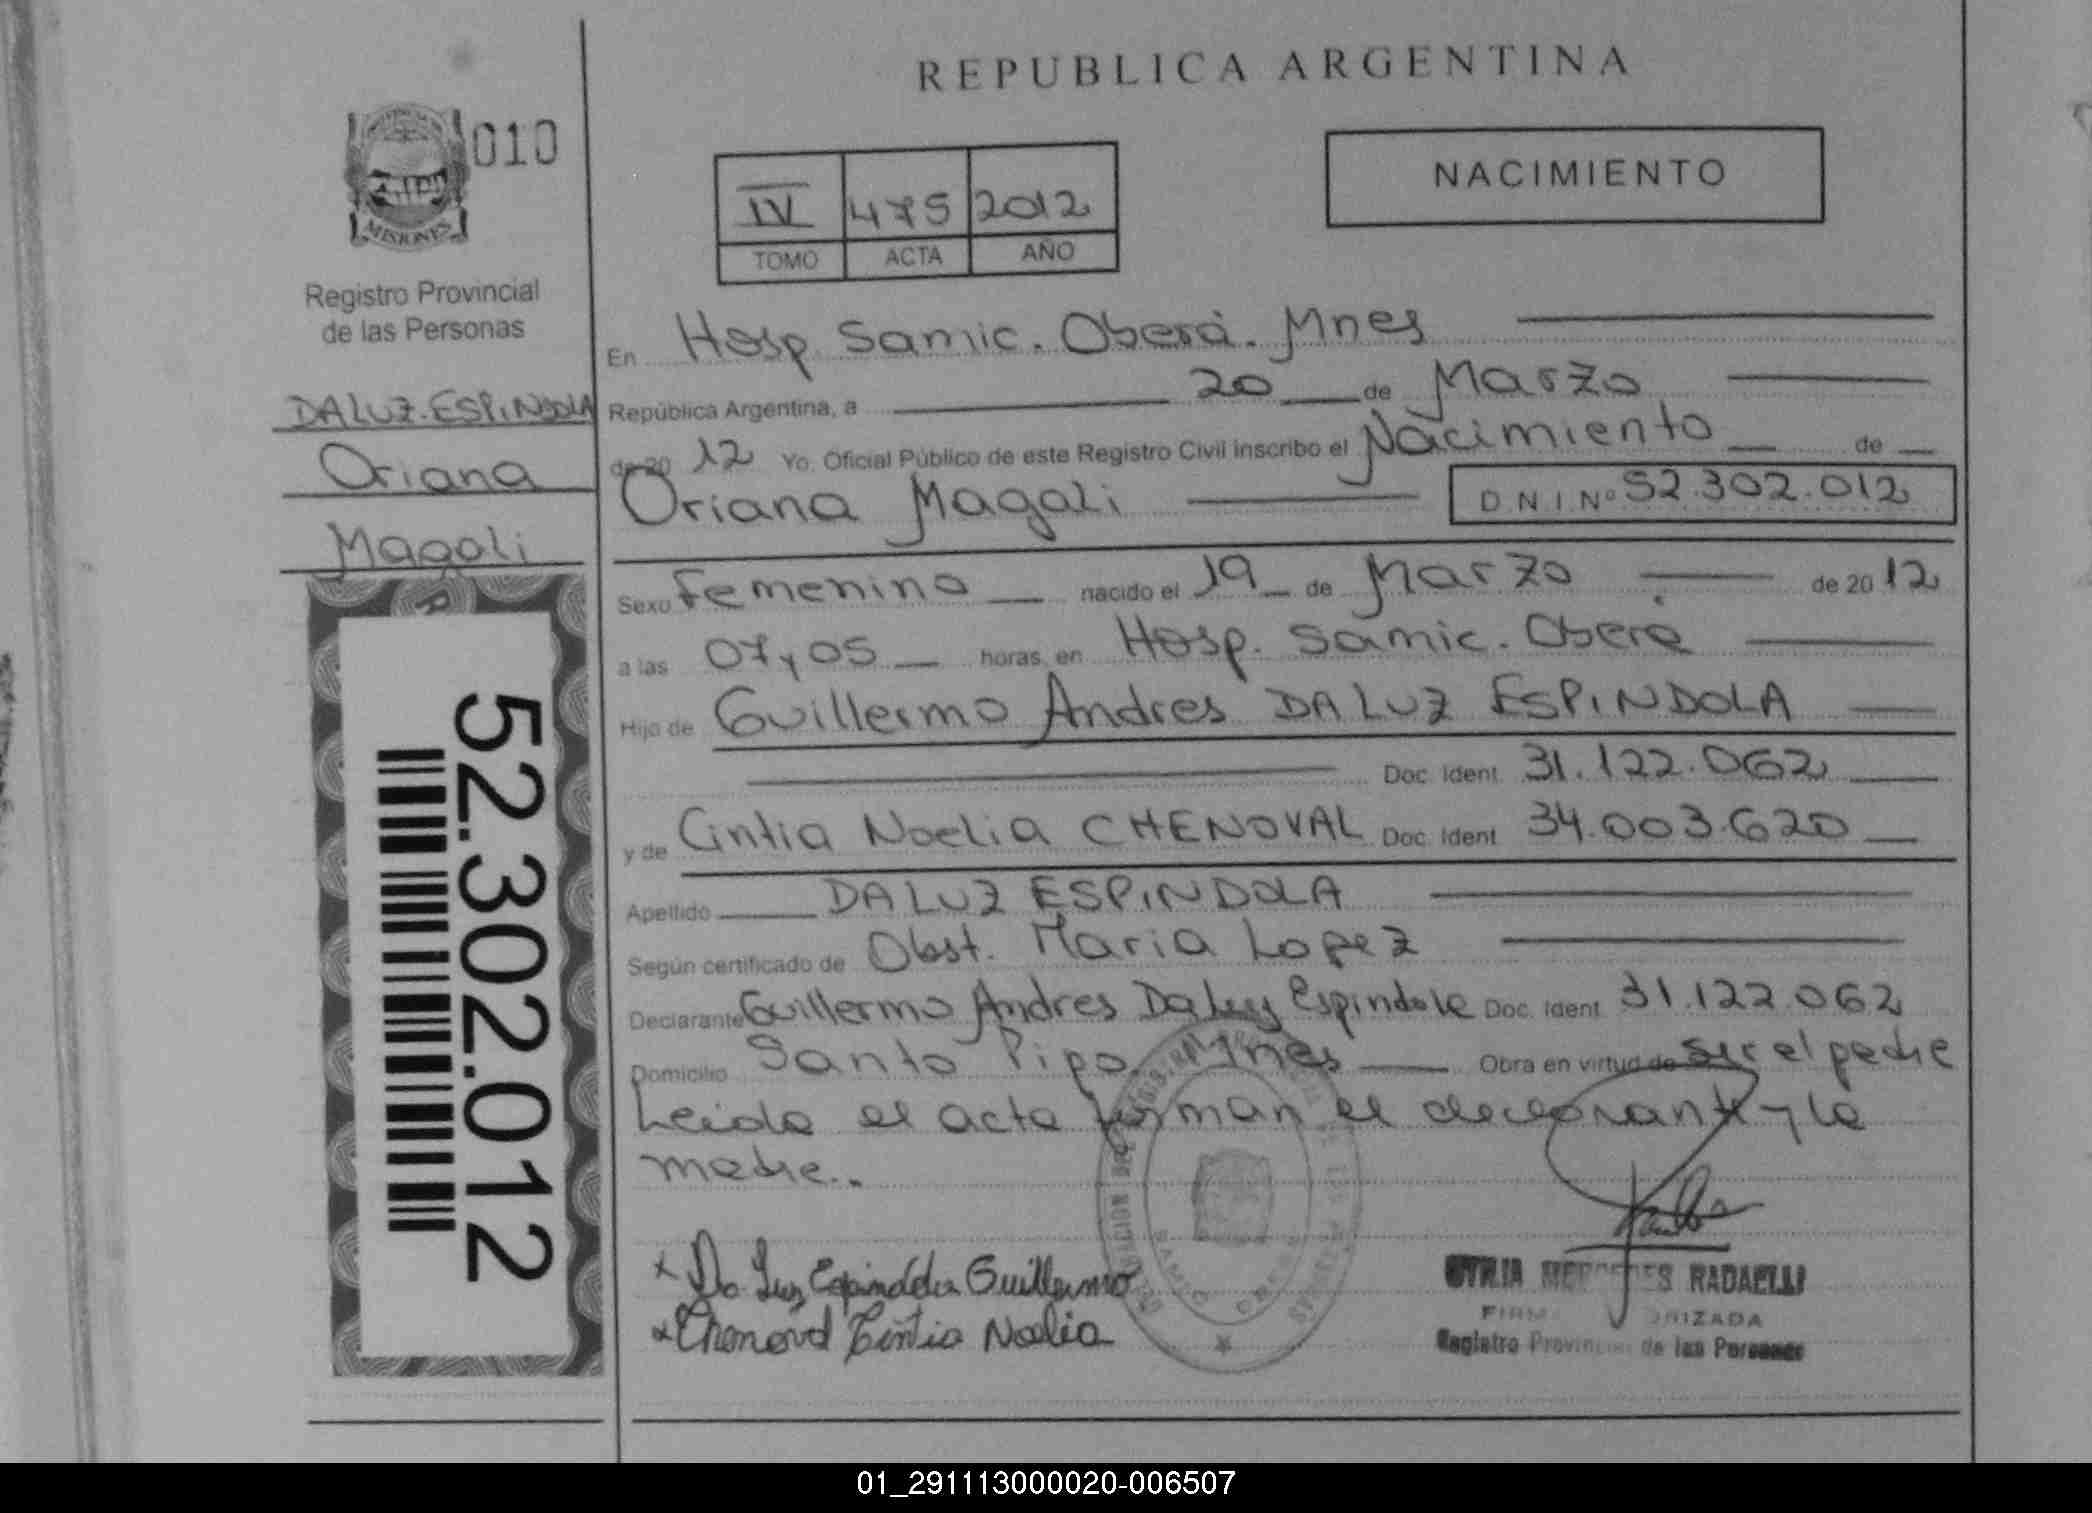 REPUBLICA ARGENTINA
010
MISIONES
Registro Provincial
de las Personas
DA LUZ ESPINDOLA
Oriana
Magali
52.302.012
IV 475 2012
TOMO ACTA AÑO
NACIMIENTO
En Hosp. Samic. Oberá. Mnes
República Argentina, a 20 de Marzo
de 20 12 Yo. Oficial Público de este Registro Civil inscribo el Nacimiento de
Oriana Magali D.N.I. Nº 52.302.012
Sexo Femenino nacido el 19 de Marzo de 20 12
a las 07 y 05 horas, en Hosp. Samic. Oberá
Hijo de Guillermo Andres DA LUZ ESPINDOLA
Doc. Ident. 31.122.062
y de Cintia Noelia CHENOVAL Doc. Ident. 34.003.620
Apellido DA LUZ ESPINDOLA
Según certificado de Obst. Maria Lopez
Declarante Guillermo Andres Da Luz Espindola Doc. Ident. 31.122.062
Domicilio Santo Pipo. Mnes Obra en virtud de ser el padre
Leida el acta firman el declarante y la
madre..
x Da Luz Espindola Guillermo
x Chenoval Cintia Noelia
MERCEDES RADAELLI
Registro Provincial de las Personas
01_291113000020-006507